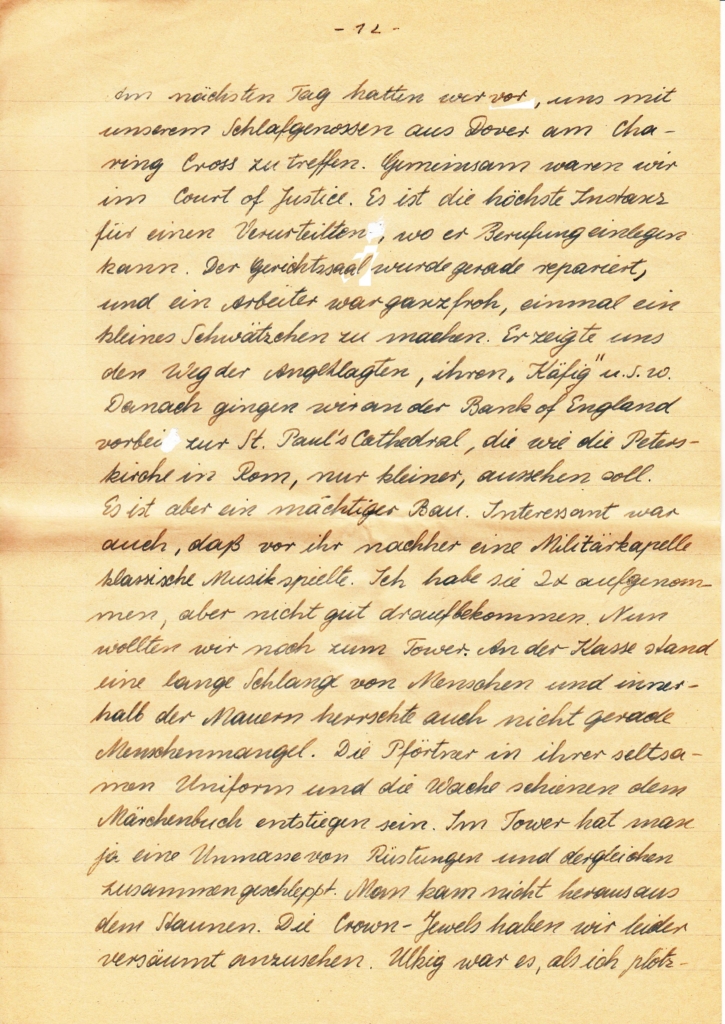 - 12 -
Am nächsten Tag hatten wir vor, uns mit
unserem Schlafgenossen aus Dover am Cha-
ring Cross zu treffen. Gemeinsam waren wir
im Court of Justice. Es ist die höchste Instanz
für einen Verurteilten, wo er Berufung einlegen
kann. Der Gerichtssaal wurde gerade repariert,
und ein Arbeiter war ganz froh, einmal ein
kleines Schwätzchen zu machen. Er zeigte uns
den Weg der Angeklagten, ihren „Käfig" u.s.w.
Danach gingen wir an der Bank of England
vorbei zur St. Paul's Cathedral, die wie die Peters-
kirche in Rom, nur kleiner, aussehen soll.
Es ist aber ein mächtiger Bau. Interessant war
auch, daß vor ihr nachher eine Militärkapelle
klassische Musik spielte. Ich habe sie 2x aufgenom-
men, aber nicht gut draufbekommen. Nun
wollten wir noch zum Tower. An der Kasse stand
eine lange Schlang von Menschen und inner-
halb der Mauern herrschte auch nicht gerade
Menschenmangel. Die Pförtner in ihrer seltsa-
men Uniform und die Wache schienen dem
Märchenbuch entstiegen sein. Im Tower hat man
ja eine Unmasse von Rüstungen und dergleichen
zusammengeschleppt. Man kam nicht heraus aus
dem Staunen. Die Crown-Jewels haben wir leider
versäumt anzusehen. Ulkig war es, als ich plötz-